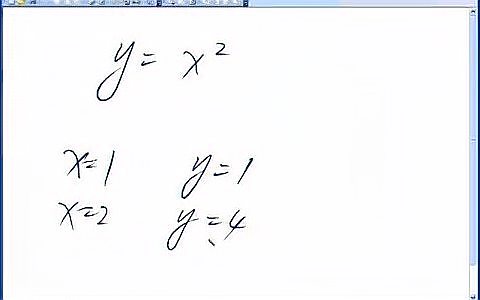 y = x²
x=1 y=1
x=2 y=4